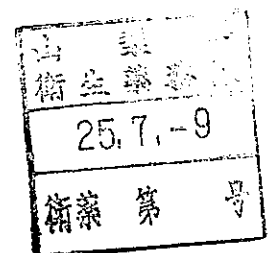 山梨
衛生薬務
25.7.-9
衛薬 第 号